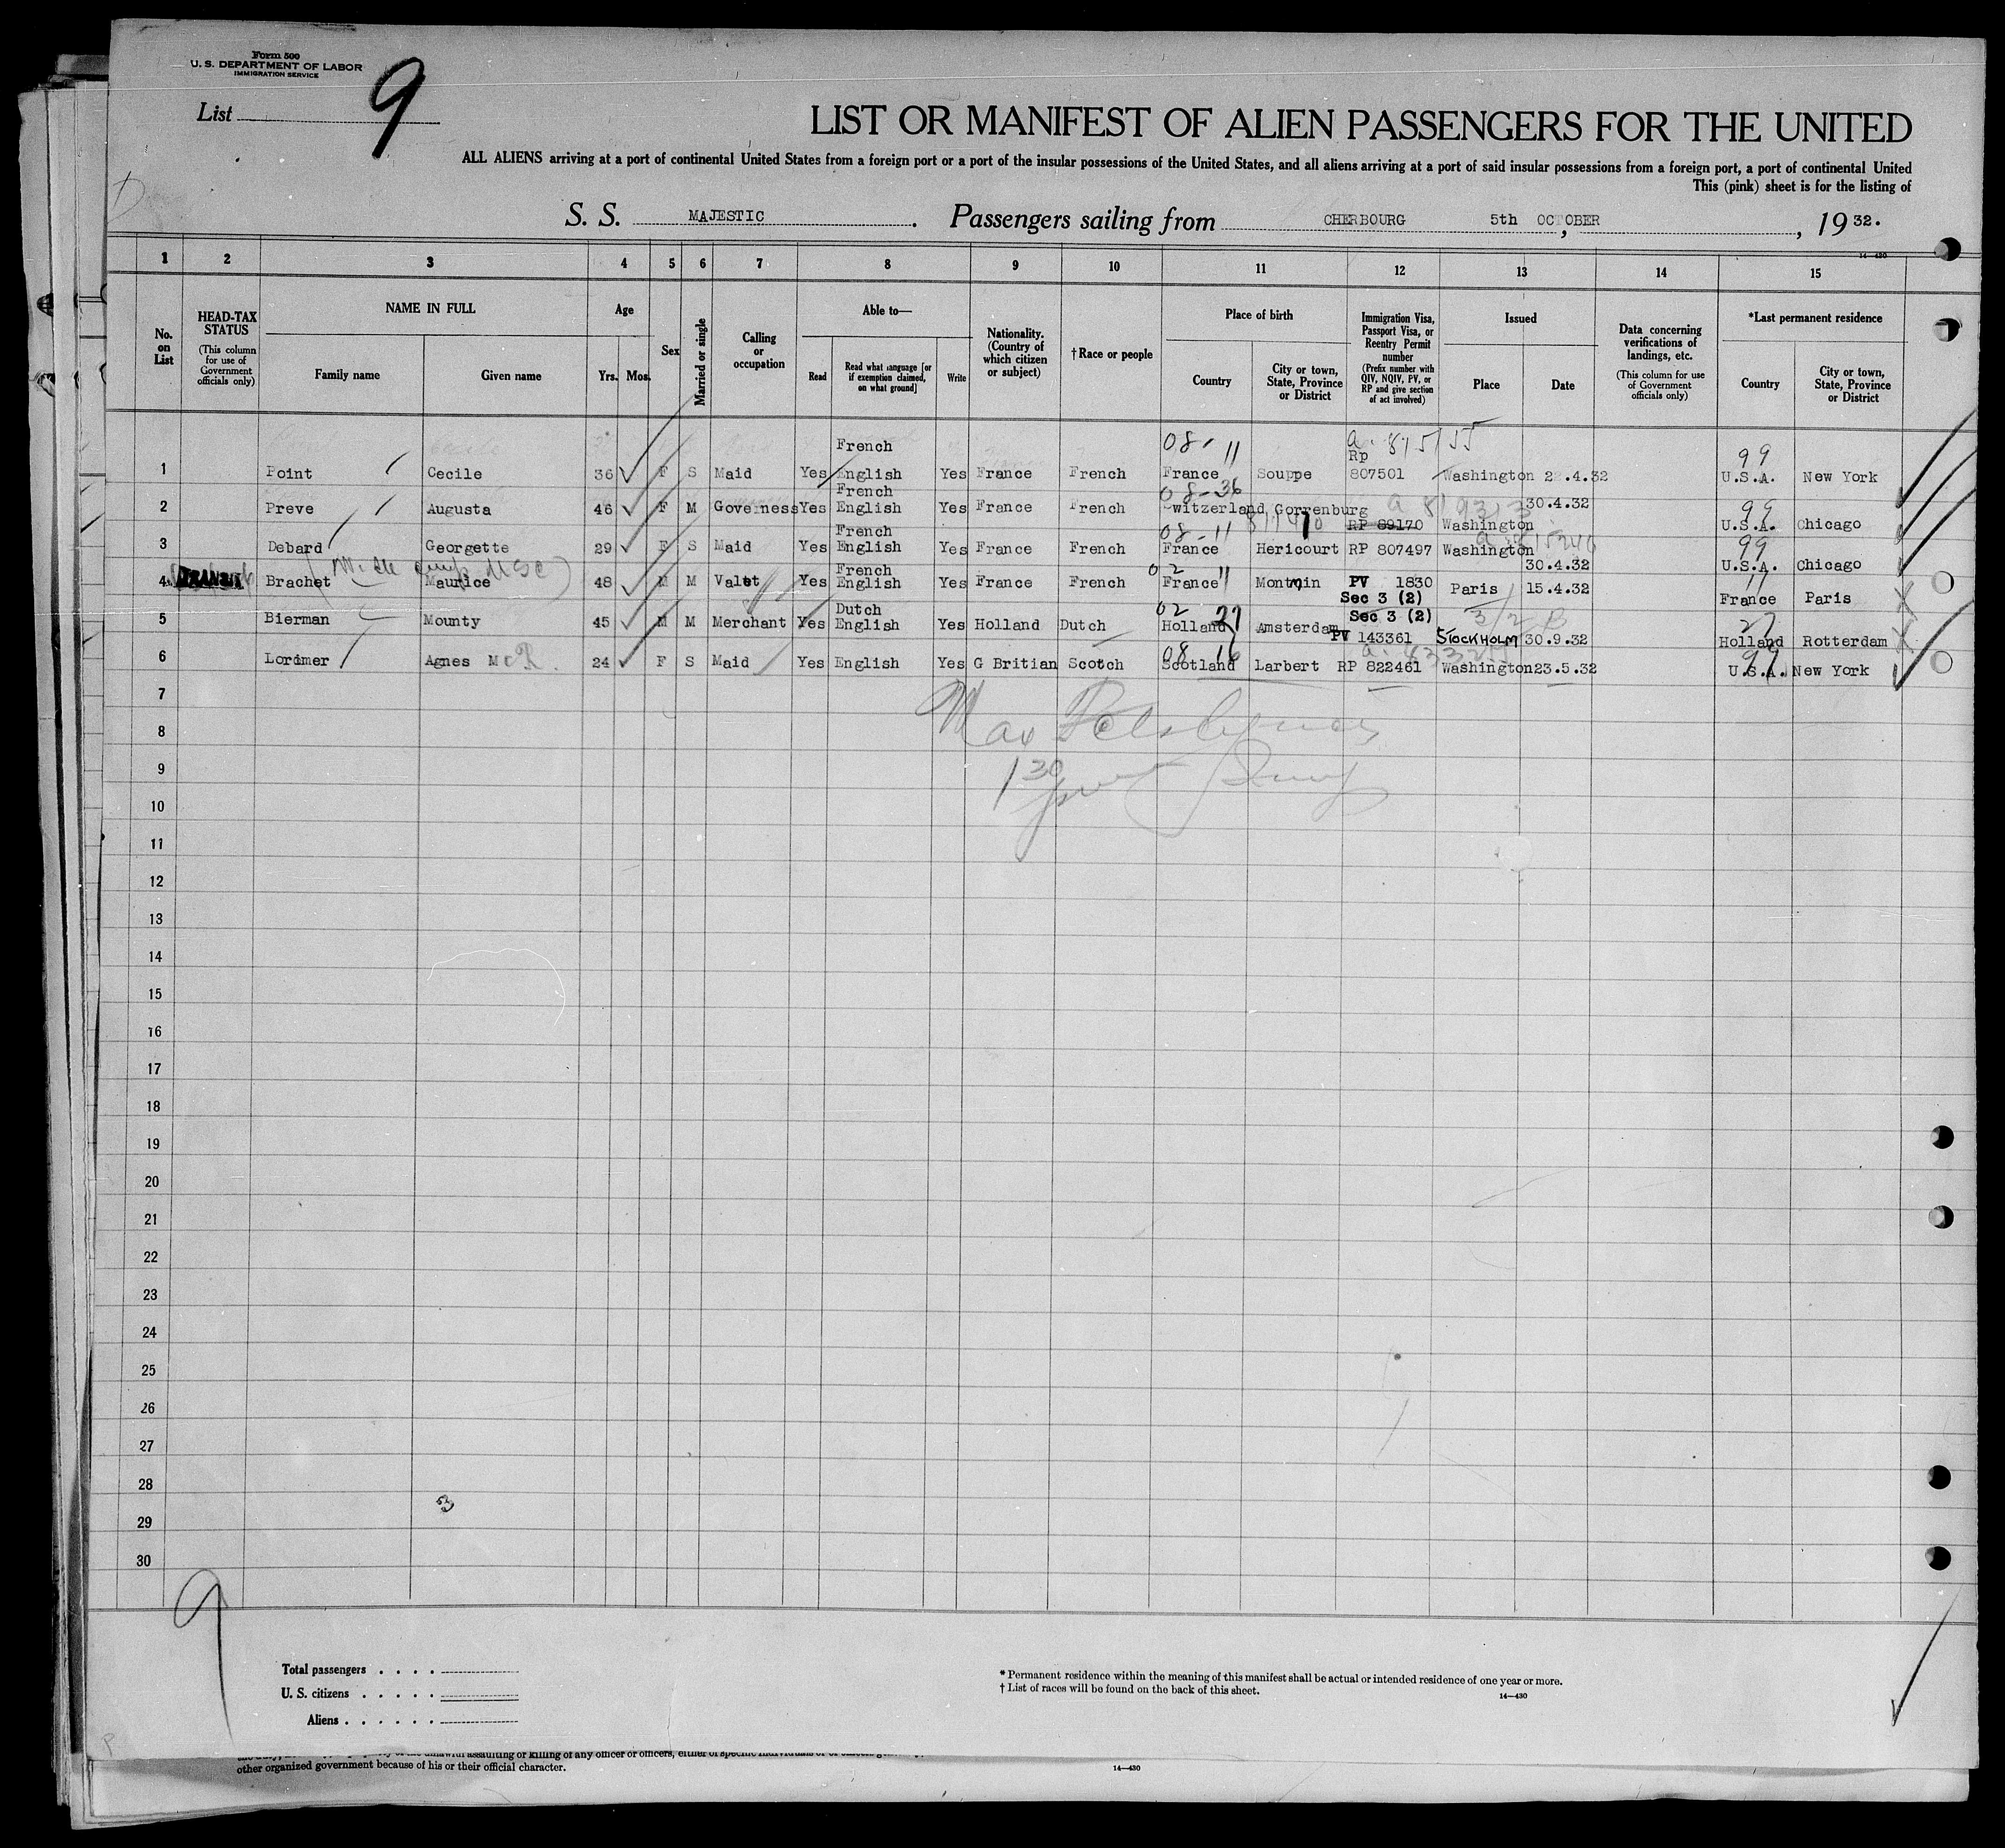 Form 500
U. S. DEPARTMENT OF LABOR
IMMIGRATION SERVICE
List 9
LIST OR MANIFEST OF ALIEN PASSENGERS FOR THE UNITED
ALL ALIENS arriving at a port of continental United States from a foreign port or a port of the insular possessions of the United States, and all aliens arriving at a port of said insular possessions from a foreign port, a port of continental United
This (pink) sheet is for the listing of
S. S. MAJESTIC. Passengers sailing from CHERBOURG 5th OCTOBER, 1932.
14—430
1 2 3 4 5 6 7 8 9 10 11 12 13 14 15
No. on List
HEAD-TAX STATUS (This column for use of Government officials only)
NAME IN FULL
Family name
Given name
Age
Yrs. Mos.
Sex
Married or single
Calling or occupation
Able to—
Read
Read what language [or if exemption claimed, on what ground]
Write
Nationality. (Country of which citizen or subject)
†Race or people
Place of birth
Country
City or town, State, Province or District
Immigration Visa, Passport Visa, or Reentry Permit number (Prefix number with QIV, NQIV, PV, or RP and give section of act involved)
Issued
Place
Date
Data concerning verifications of landings, etc. (This column for use of Government officials only)
*Last permanent residence
Country
City or town, State, Province or District
French 08-11 Rp 99
1 Point Cecile 36 F S Maid Yes English Yes France French France Souppe 807501 Washington .4.32 U.S.A. New York
French 08-36 30.4.32 99
2 Preve Augusta 46 F M Governess Yes English Yes France French Switzerland Gorrenburg RP 89170 Washington U.S.A. Chicago
French 08-11 99
3 Debard Georgette 29 F S Maid Yes English Yes France French France Hericourt RP 807497 Washington 30.4.32 U.S.A. Chicago
French 02 11 11
4 TRANSIT Brachet Maurice 48 M M Valet Yes English Yes France French France PV 1830 Sec 3 (2) Paris 15.4.32 France Paris
Dutch 02 27 Sec 3 (2) 27
5 Bierman Mounty 45 M M Merchant Yes English Yes Holland Dutch Holland Amsterdam PV 143361 STOCKHOLM 30.9.32 Holland Rotterdam
08 16 99
6 Lorimer Agnes Mc R. 24 F S Maid Yes English Yes G Britian Scotch Scotland Larbert RP 822461 Washington 23.5.32 U.S.A. New York
7
8
Max
9
130
10
11
12
13
14
15
16
17
18
19
20
21
22
23
24
25
26
27
28
3
29
30
9
Total passengers . . . .
U. S. citizens . . . . .
Aliens . . . . . .
* Permanent residence within the meaning of this manifest shall be actual or intended residence of one year or more.
† List of races will be found on the back of this sheet.
14—430
unlawful assaulting or killing of any officer or officers, either of specific individuals or of
other organized government because of his or their official character.
14—430